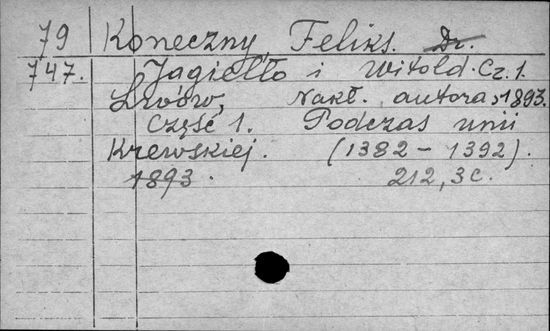 79 Koneczny, Feliks. Dr.
747. Jagiełło i Witold. Cz. 1.
Lwów, Nakł. autora, 1893.
Część 1. Podczas unii
Krewskiej. (1382 - 1392).
1893. 212, 3 c.